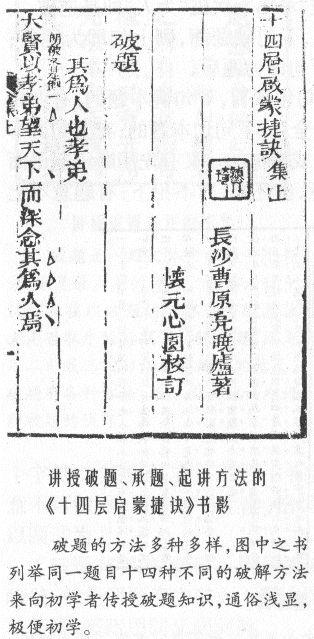 十四層啟蒙捷訣集上
長沙曹原亮曉廬著
懷元心園校訂
破題
其爲人也孝弟
大賢以孝弟望天下而深念其爲人焉
讲授破题、承题、起讲方法的
《十四层启蒙捷诀》书影
破题的方法多种多样，图中之书
列举同一题目十四种不同的破解方法
来向初学者传授破题知识，通俗浅显，
极便初学。